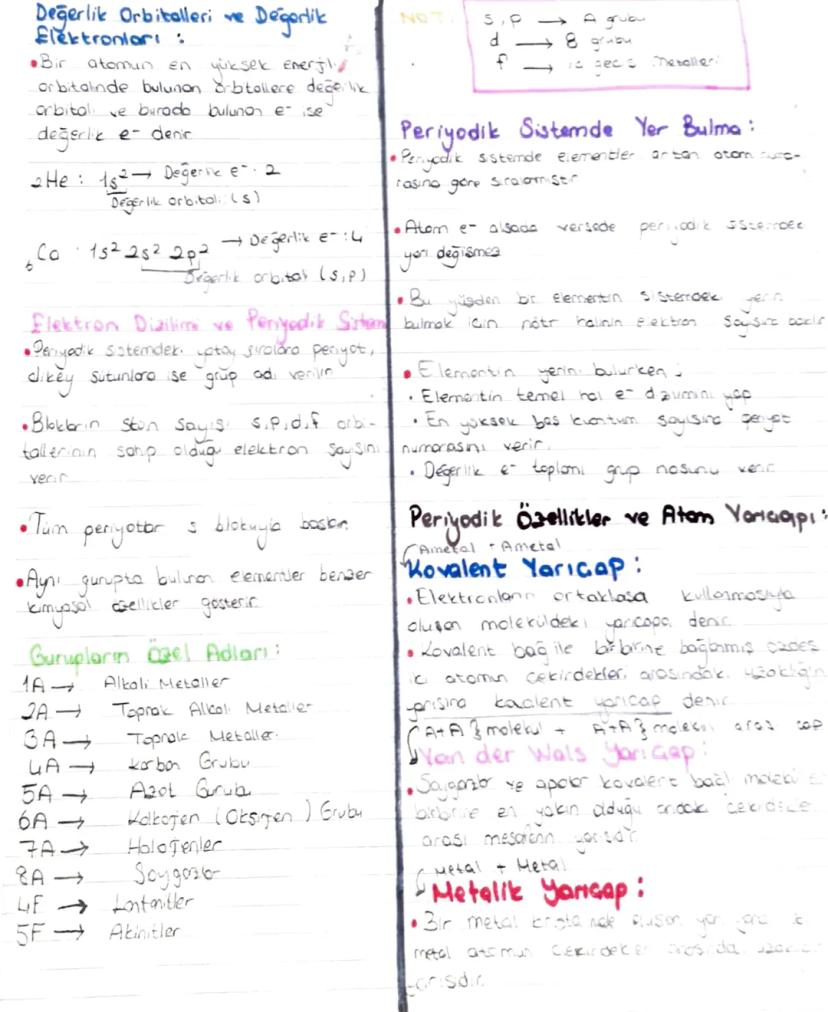 Değerlik Orbitalleri ve Değerlik
Elektronları :
• Bir atomun en yüksek enerjili
orbitalinde bulunan orbitallere değerlik
orbitali ve burada bulunan e- ise
değerlik e- denir
2He : 1s² → Değerlik e- : 2
Değerlik orbitali (s)
6Ca : 1s² 2s² 2p² → Değerlik e- : 4
Değerlik orbital (s,p)
Elektron Dizilimi ve Periyodik Sistem
• Periyodik sistemdeki yatay sıralara periyot,
dikey sütunlara ise grup adı verilir
• Blokların sayısı s,p,d,f orbi-
tallerinin sahip olduğu elektron sayısını
verir
• Tüm periyotlar s bloğuyla başlar.
• Aynı gurupta bulunan elementler benzer
kimyasal özellikler gösterir
Gurupların Özel Adları :
1A → Alkali Metaller
2A → Toprak Alkali Metaller
3A → Toprak Metaller
4A → Karbon Grubu
5A → Azot Gurubu
6A → Kalkojen (Oksijen) Grubu
7A → Halojenler
8A → Soygazlar
4F → Lantanitler
5F → Akinitler
NOT :
s, p → A grubu
d → B grubu
f → iç geçiş metalleri
Periyodik Sistemde Yer Bulma :
• Periyodik sistemde elementler artan atom numa-
rasına göre sıralamıştır
• Atom e- alsada versede periyodik sistemdek
yeri değişmez
• Bu yüzden bir elementin sistemdek yerin
bulmak için nötr halinin elektron sayısına bakılır
• Elementin yerini bulurken ;
• Elementin temel hal e- dizilimini yap
• En yüksek baş kuantum sayısına periyot
numarasını verir.
• Değerlik e- toplamı grup nosunu verir
Periyodik Özellikler ve Atom Yarıçapı :
Ametal - Ametal
Kovalent Yarıçap :
• Elektronların ortaklaşa kullanmasıyla
oluşan moleküldeki yarıçapa denir
• Kovalent bağ ile birbirine bağlanmış özdeş
iki atomun çekirdekleri arasındaki uzaklığın
yarısına kovalent yarıçap denir
A+A } molekül + A+A } molekül arası çap
Van der Wals Yarıçap :
• Soygazlar ve apolar kovalent bağlı
birbirine en yakın olduğu andak çekirdekle
arası mesafenin yarısıdır
Metal + Metal
Metalik Yarıçap :
• Bir metal oluşan yan yana
metal atomun çekirdekler arasında
yarısıdır.